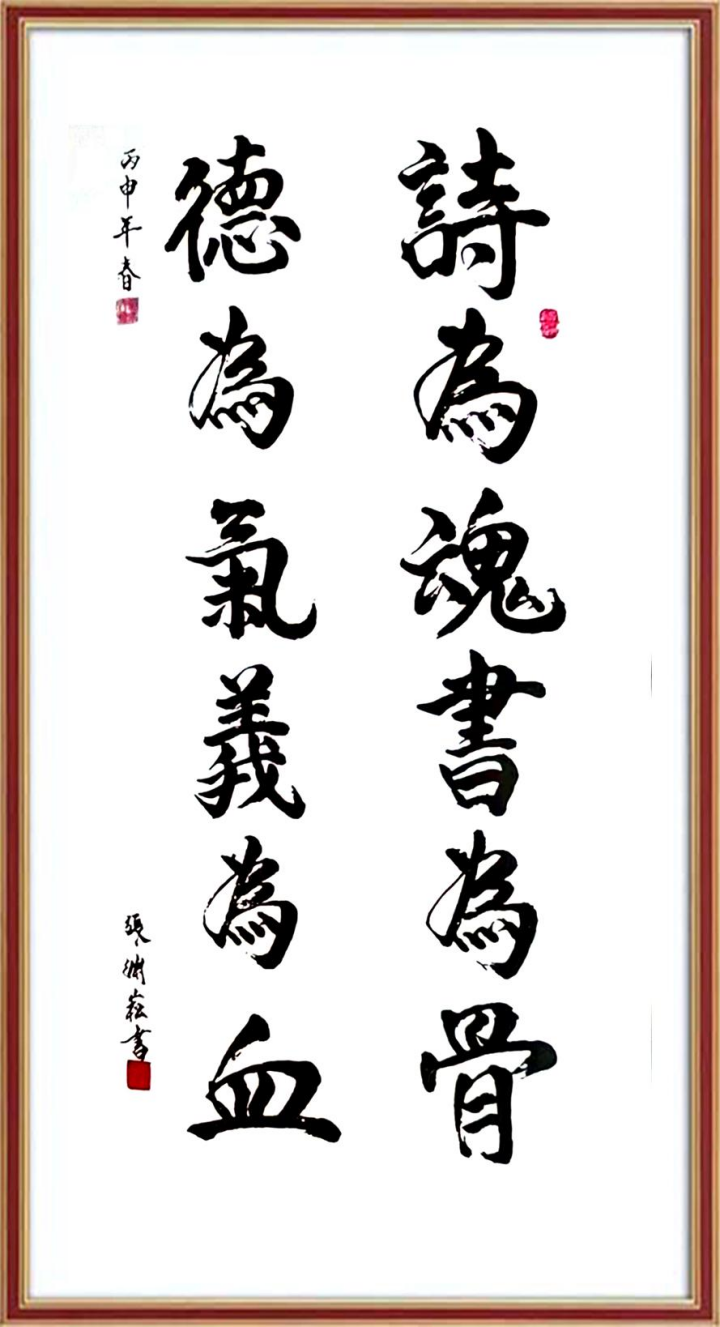 詩為魂書為骨
德為氣義為血
丙申年春
張淵崧書